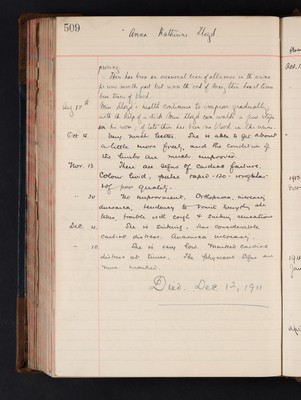 509
Anna Katherine Lloyd
proving.
There has been an occasional trace of albumen in the urine
for some month past but none the end of
been traces of blood.
Aug 10th Miss Lloyd's health continues to improve gradually
with the help of a stick Miss Lloyd can walk a few steps
of late there has been no blood in the urine.
Oct 12 Very much better. She is able to get about
a little more freely, and the condition of
the limbs are much improved.
Nov. 13 There are signs of cardiac failure.
Colour livid, pulse rapid - 120 - irregular
& of poor quality.
" 20 No improvement, Orthopnoea,
anasarca, tendency to vomit
less trouble with cough & sinking sensations
Dec 4. She is sinking, has considerable
cardiac distress. Anasarca increasing.
" 10 She is very low. Marked cardiac
distress at times. The physical signs are
more marked.
Died. Dec 12, 1911